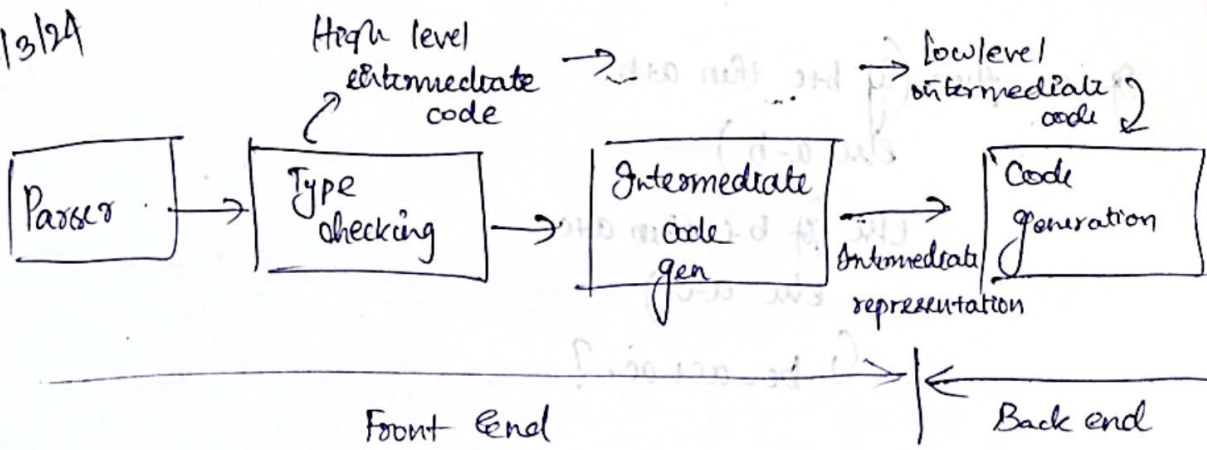 /3/24
High level
intermediate
code
→ ... → Low level
intermediate
code
Parser
Type
checking
Intermediate
code
gen
Intermediate
representation
Code
generation
Front End
Back end